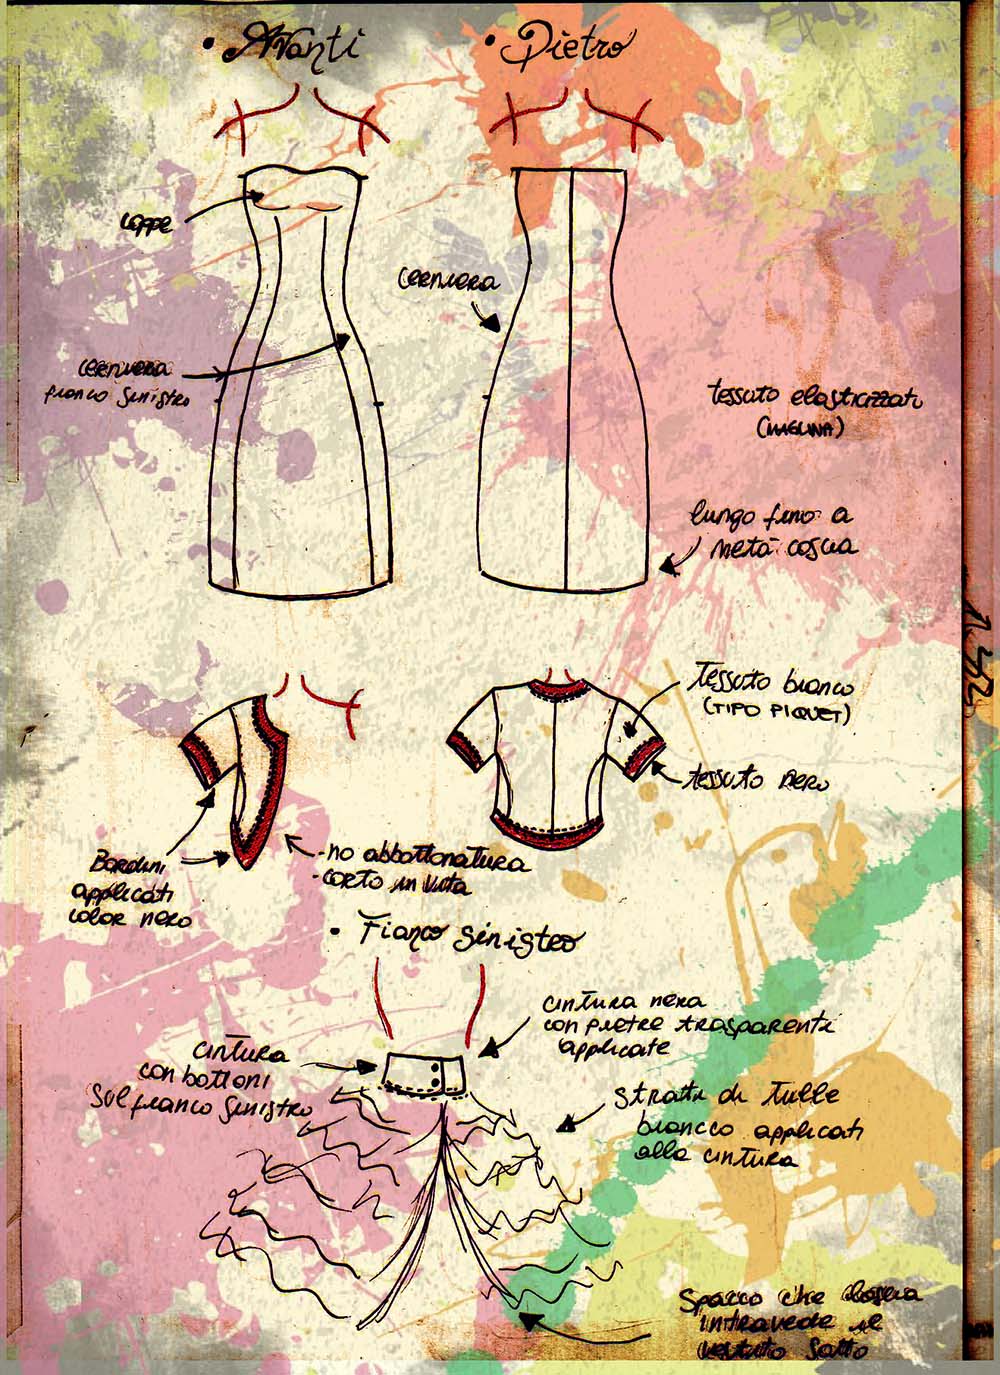 • Avanti
• Dietro
coppe
cerniera
cerniera
fianco sinistro
tessuto elasticizzato
(MAGLINA)
lungo fino a
metà coscia
n. 42
tessuto bianco
(TIPO PIQUET)
tessuto nero
Bordini
applicati
color nero
-no abbottonatura
-corto in vita
• Fianco sinistro
cintura nera
con pietre trasparenti
applicate
cintura
con bottoni
sul fianco sinistro
strati di tulle
biancco applicati
alla cintura
Spacco che lascia
intravede il
vestito sotto